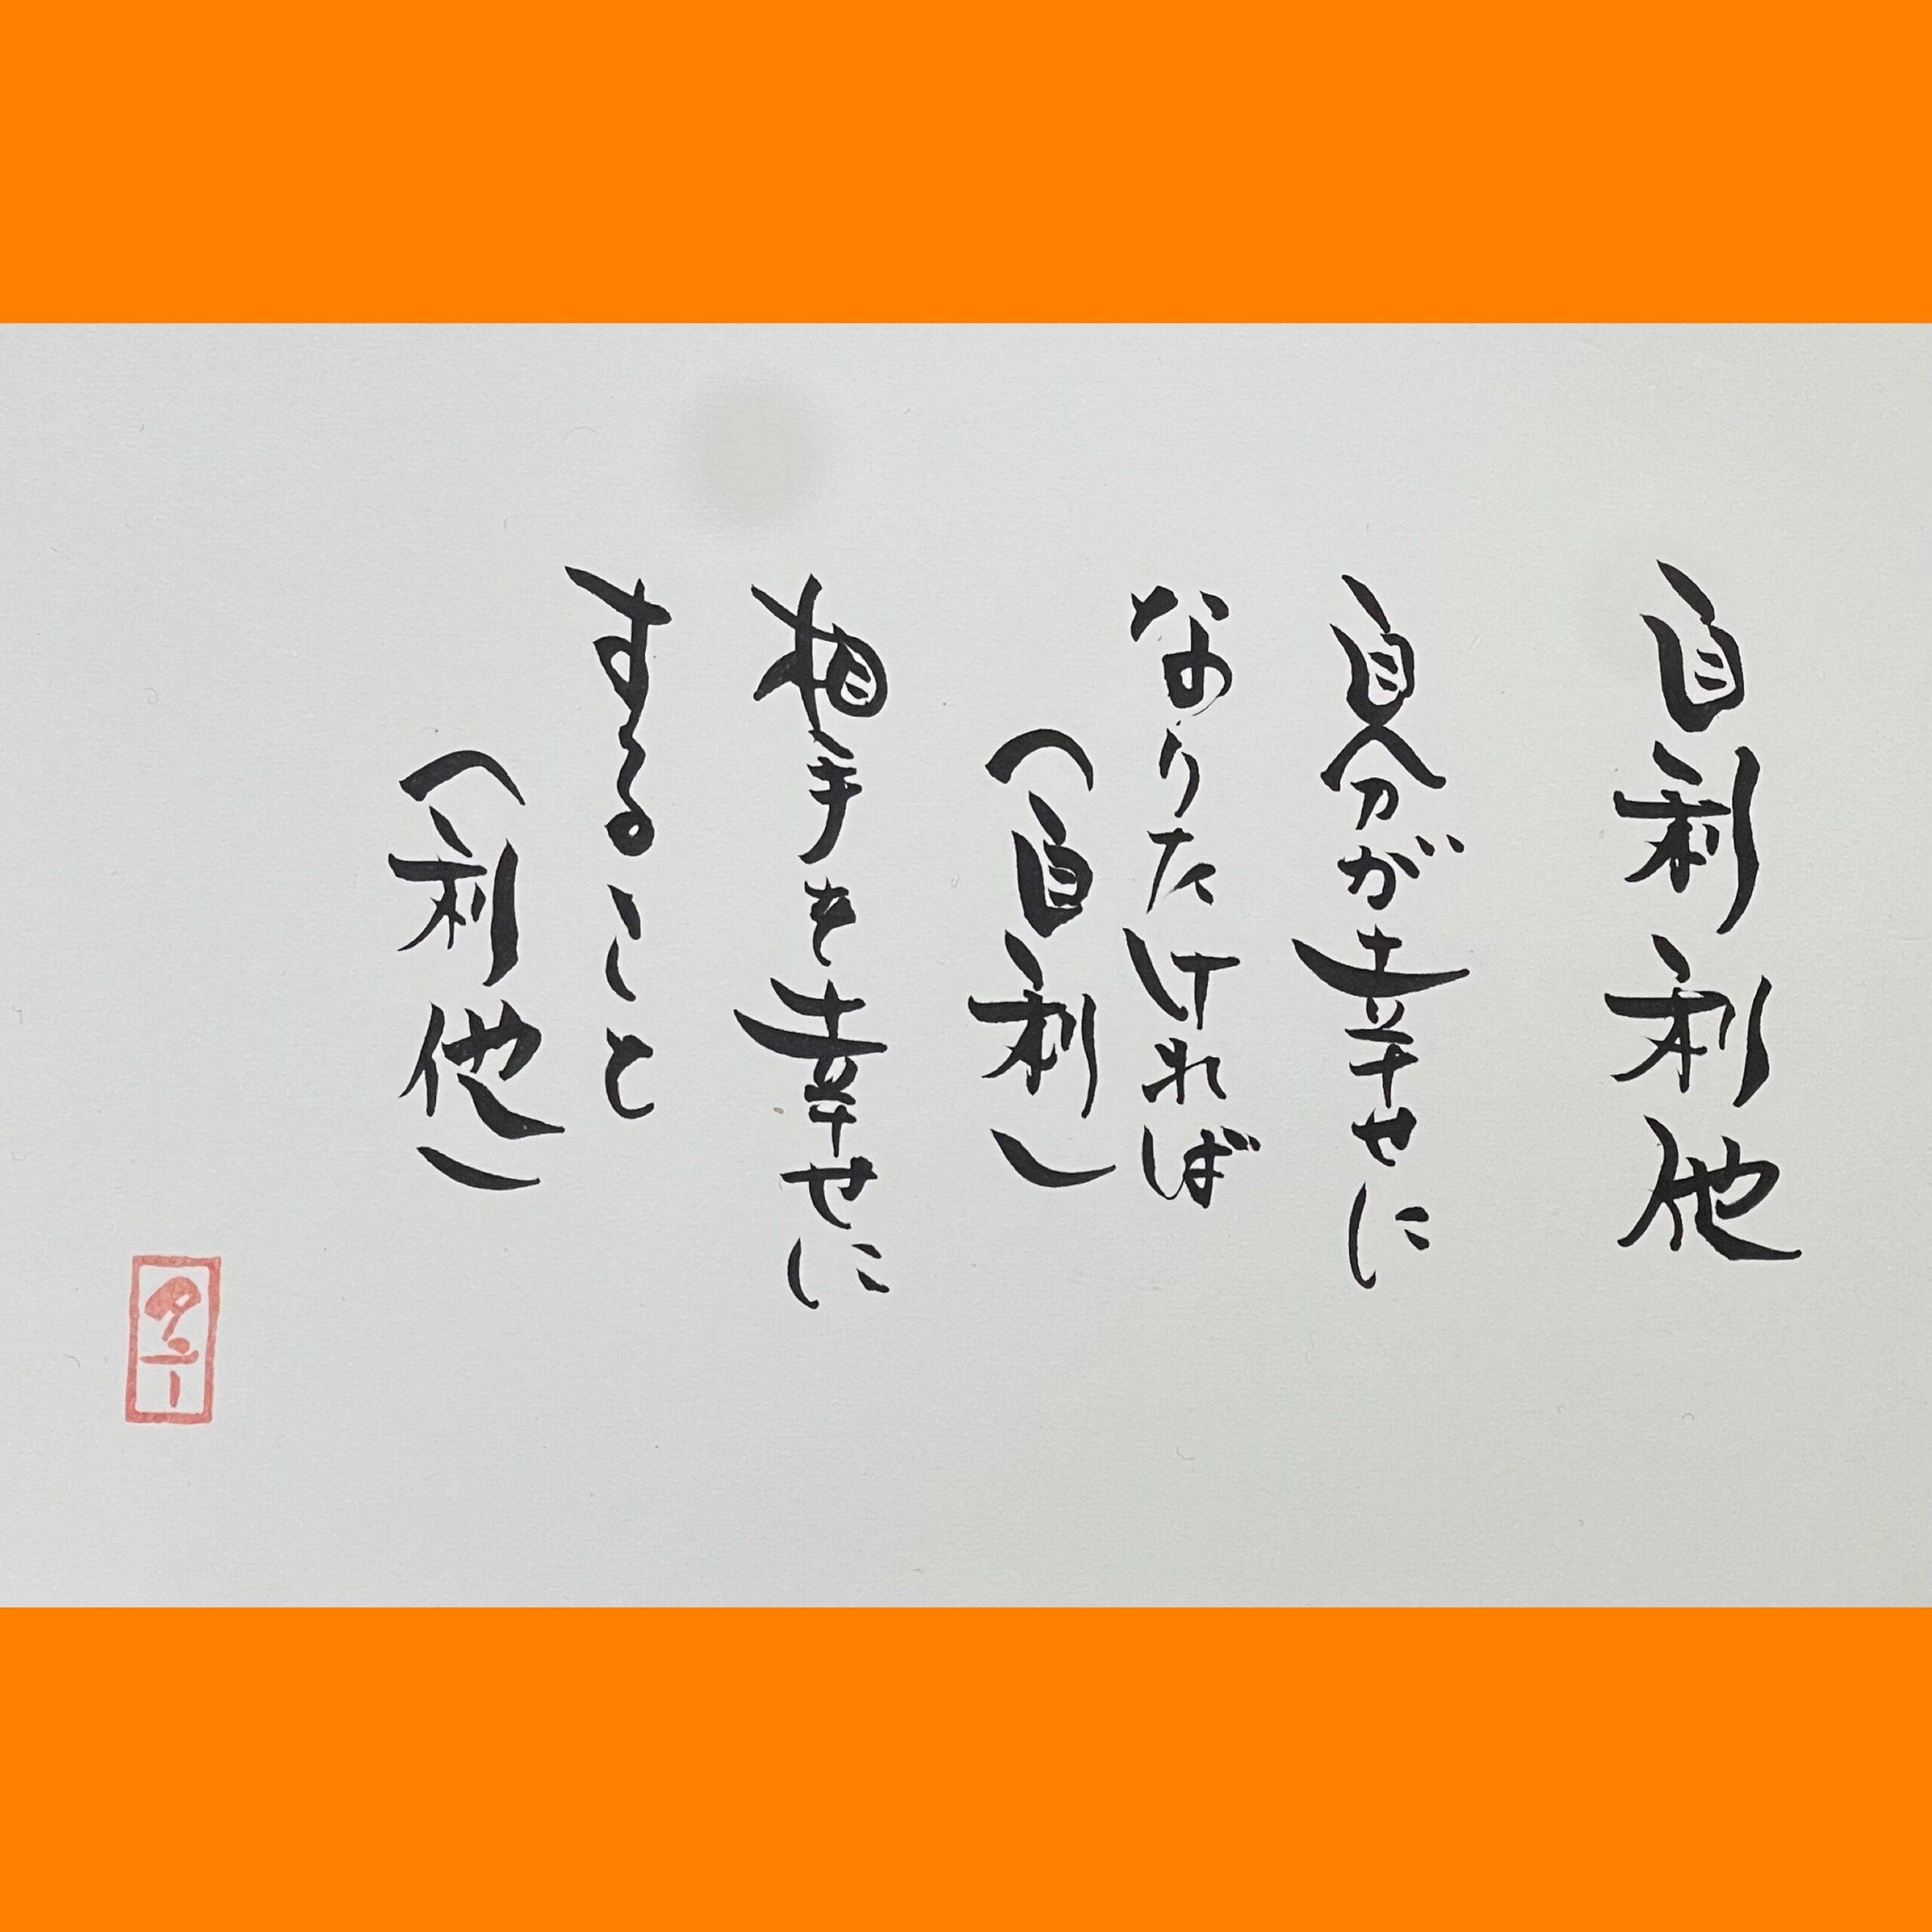 自利利他
自分が幸せに
なりたければ
（自利）
相手を幸せに
すること
（利他）
タニー